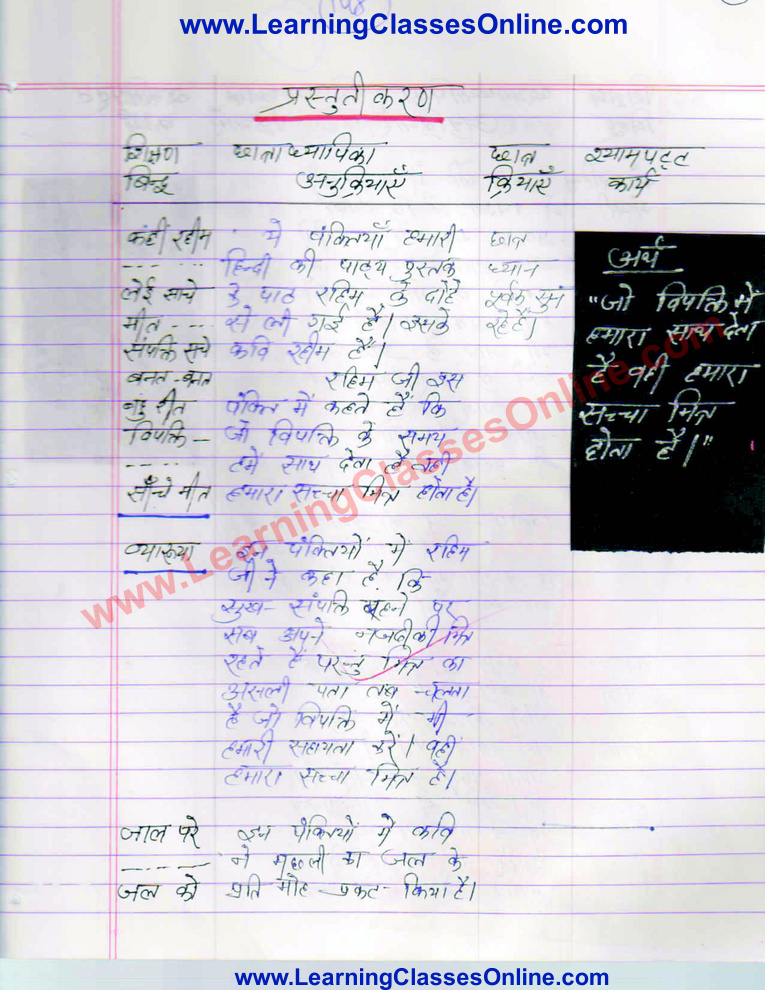 www.LearningClassesOnline.com
प्रस्तुतीकरण
शिक्षण छात्राध्यापिका छात्र श्यामपट्ट
बिन्दु अनुक्रियाएँ क्रियाएँ कार्य
कही रहीम ये पंक्तियाँ हमारी छात्र
---- हिन्दी की पाठ्य पुस्तक ध्यान
लेई साचे के पाठ रहिम के दोहे पूर्वक सुन
मीत --- से ली गई है। इसके रहे हैं।
संपत्ति सचे कवि रहीम हैं।
बनत-बनत रहिम जी इस
बहु रीत पंक्ति में कहते हैं कि
विपत्ति - जो विपत्ति के समय
---- हमें साथ देता है वही
साँचे मीत हमारा सच्चा मित्र होता है।
अर्थ
"जो विपत्ति में
हमारा साथ देता
है वही हमारा
सच्चा मित्र
होता है।"
व्याख्या इन पंक्तियों में रहिम
जी ने कहा है कि
सुख-संपत्ति रहने पर
सब अपने नजदीकी मित्र
रहते हैं परन्तु मित्र का
असली पता तब चलता
है जो विपत्ति में भी
हमारी सहायता करें। वही
हमारा सच्चा मित्र है।
जाल परे इन पंक्तियों में कवि
----- ने मछली का जल के
जल को प्रति मोह प्रकट किया है।
www.LearningClassesOnline.com
www.LearningClassesOnline.com